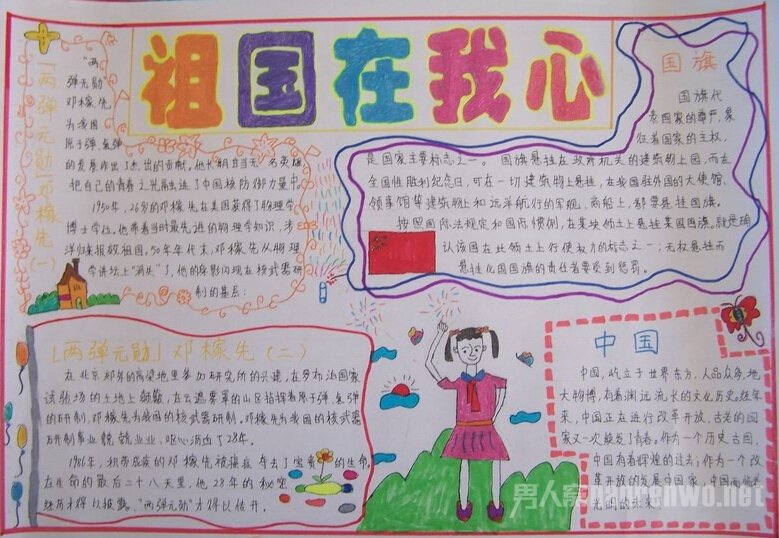 祖国在我心
「两弹元勋」邓稼先(一)
"两
弹元勋"
邓稼先
为我国
原子弹、氢弹
的发展作出了杰出的贡献。他长期
把自己的青春
1950年,26岁的邓稼先在美国获得了物理学
博士学位。他带着当时最先进的物理学知识,涉
洋归来报效祖国。50年年代末,邓稼先从物理
学讲坛上"消失"了,他的身影闪现在核武器研
制的基层:
国旗
国旗代
表国家的尊严,象
征着国家的主权,
是国家主要标志之一。国旗悬挂在政府机关的建筑物上园,而在
全国性胜利纪念日,可在一切建筑物上悬挂,在我国驻外国的大使馆、
领事馆等建筑物上和远洋航行的军舰、商船上,都要悬挂国旗。
按照国际法规定和国际惯例,在某块领土上悬挂某国国旗,就是确
认该国在此领土上行使权力的标志之一;无权悬挂而
悬挂他国国旗的责任者要受到惩罚。
「两弹元勋」邓稼先(二)
在北京郊外的高粱地里参加研究所的兴建,在罗布泊国家
试验场的土地上颠簸,在云遮雾罩的山区指挥着原子弹、氢弹
的研制。邓稼先为我国的核武器研制,邓稼先为我国的核武器
研制事业兢兢业业,呕心沥血了28年。
1986年,积劳成疾的邓稼先被癌症夺去了宝贵的生命。
在生命的最后二十八天里,他28年的秘密
经历才得以披露,"两弹元勋"才得以传开。
中国
中国,屹立于世界东方,人品众多,地
大物博,有着渊远流长的文化历史。近年
来,中国正在进行改革开放,古老的国
家又一次焕发了青春。作为一个历史古国,
中国有着辉煌的过去;作为一个改
革开放的发展中国家,中国面临着
光明的未来。
男人窝nanrenwo.net